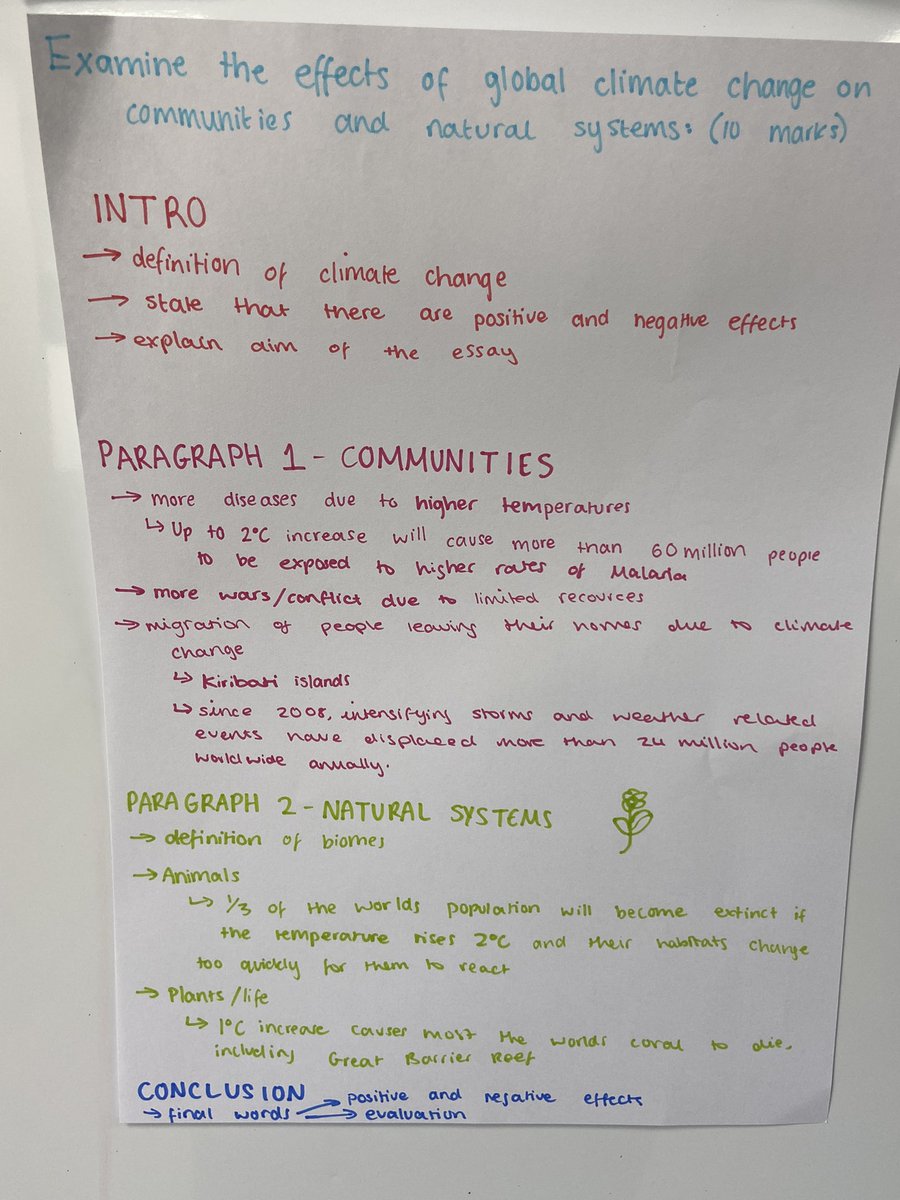 Examine the effects of global climate change on
communities and natural systems: (10 marks)
INTRO
→ definition of climate change
→ state that there are positive and negative effects
→ explain aim of the essay
PARAGRAPH 1 - COMMUNITIES
→ more diseases due to higher temperatures
↳ Up to 2°C increase will cause more than 60 million people
to be exposed to higher rates of Malaria
→ more wars/conflict due to limited recources
→ migration of people leaving their homes due to climate
change
↳ Kiribati islands
↳ since 2008, intensifying storms and weather related
events have displaced more than 24 million people
worldwide anually.
PARAGRAPH 2 - NATURAL SYSTEMS
→ definition of biomes
→ Animals
↳ 1/3 of the worlds population will become extinct if
the temperature rises 2°C and their habitats change
too quickly for them to react
→ Plants/life
↳ 1°C increase causes most the worlds coral to die,
including Great Barrier Reef
CONCLUSION
→ positive and negative effects
→ final words → evaluation